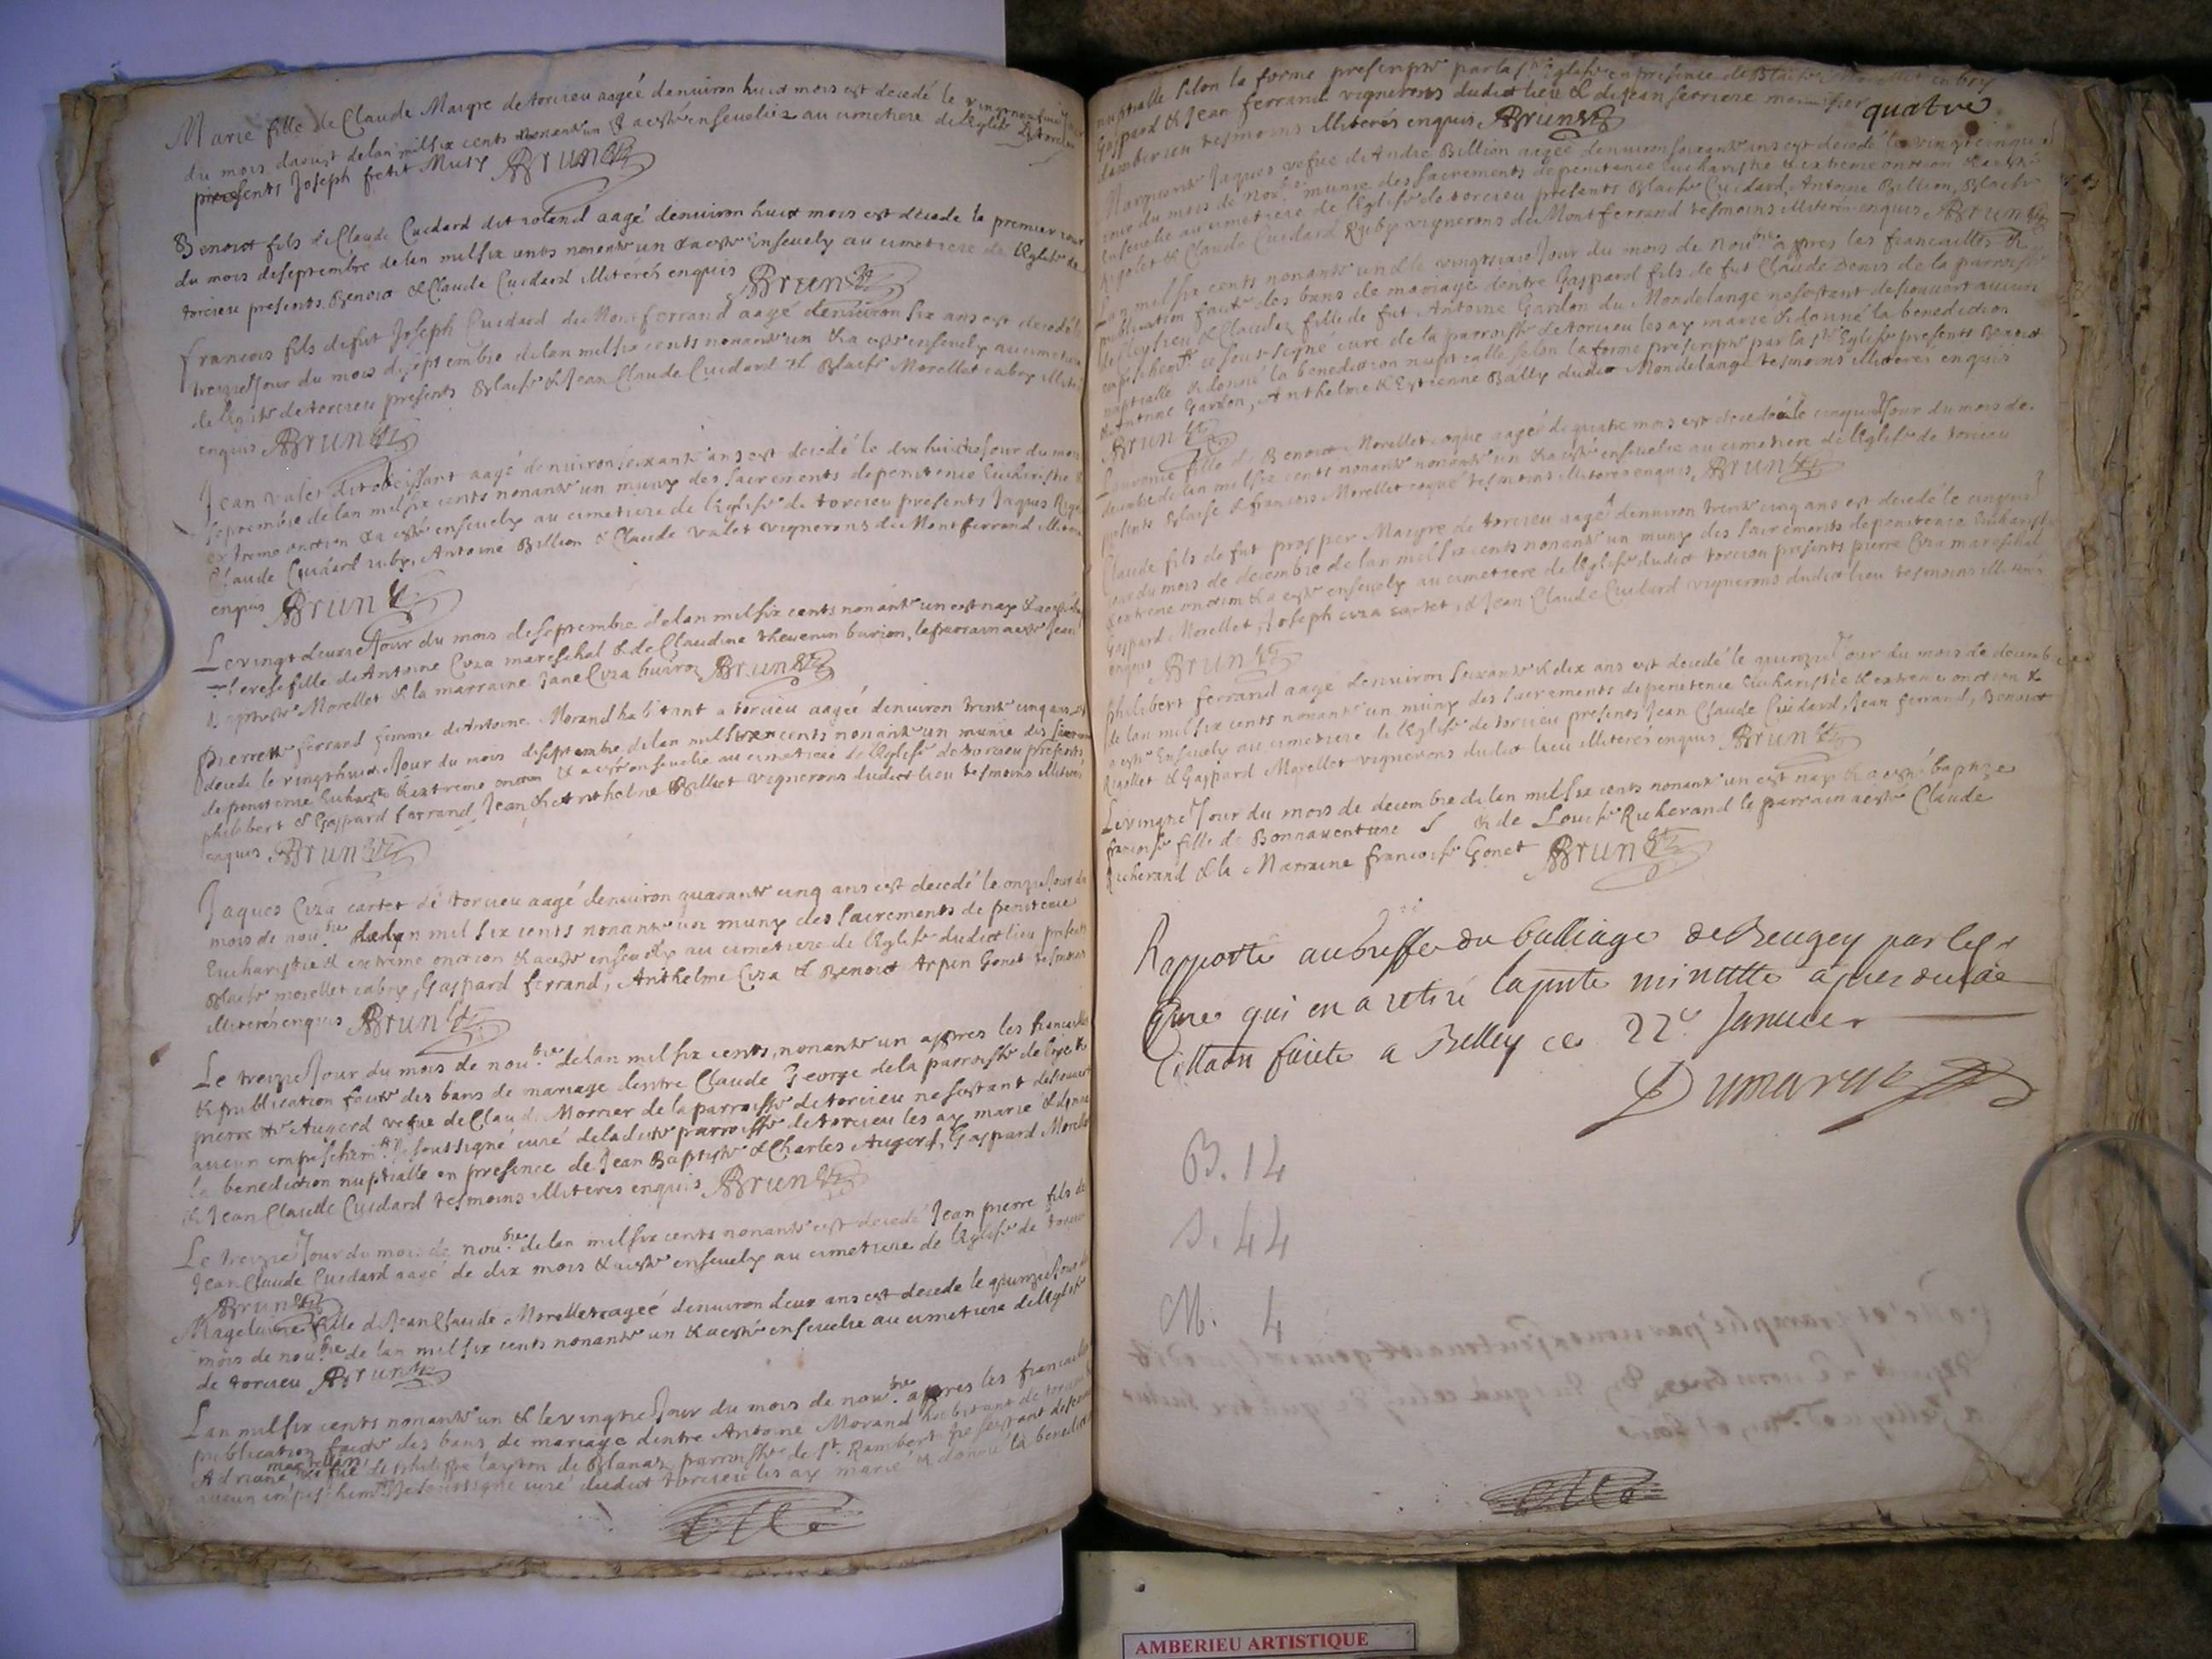 Marie fille de Claude Maigre de torcieu aagée denuiron huit mois est decedé le
du mois daoust delan mil six cents nonante un & a esté enseuelie au cimetiere de leglise de torcieu
presents Joseph petit Muty Brun
Benoist fils de Claude Cuidard dit roland aagé denuiron huit mois est decede le premier jour
du mois de septembre delan mil six cents nonante un & a esté enseuely au cimetiere de leglise de
torcieu presents Benoist & Claude Cuidard illiterés enquis Brun
francois fils de fut Joseph Cuidard du Montferrand aagé denuiron six ans est decedé le
treizie Jour du mois de septembre delan mil six cents nonante un & a esté enseuely au cimetiere
de leglise de torcieu presents Blaise & Jean Claude Cuidard & Blaise Morellet cabry
enquis Brun
Jean valet dit obeissant aagé denuiron soixante ans est decedé le dix huictie Jour du mois
septembre delan mil six cents nonante un muny des sacrements de penitence Eucharistie &
extreme onction & a esté enseuely au cimetiere de leglise de torcieu presents Jaques
Claude Cuidard ruby, Antoine Billion & Claude valet vignerons du Montferrand
enquis Brun
Le vingt deuxie Jour du mois de septembre delan mil six cents nonante un est nay & a esté
Terese fille de Antoine Cyza mareschal & de Claudine Theuenin burion, le parrain a esté Jean
baptiste Morellet & la marraine Jane Cyza huiron Brun
Pierrette ferrand femme de Antoine Morand habitant a torcieu aagée denuiron trente cinq ans est
decede le vingthuit Jour du mois de septembre delan mil six cents nonante un munie des
de penitence Eucharistie & extreme onction & a esté enseuelie au cimetiere de leglise de torcieu presents
philibert & Gaspard ferrand, Jean & Anthelme Billiet vignerons dudict lieu tesmoins illiterés
enquis Brun
Jaques Cyza cartet de torcieu aagé denuiron quarante cinq ans est decedé le onzie Jour du
mois de noubre delan mil six cents nonante un muny des sacrements de penitence
Eucharistie & extreme onction & a esté enseuely au cimetiere de leglise dudict lieu presents
Blaise morellet cabry, Gaspard ferrand, Anthelme Cyza & Benoist Arpin Gonet tesmoins
illiterés enquis Brun
Le treizie Jour du mois de noubre delan mil six cents nonante un appres les francailles
& publication faite des bans de mariage dentre Claude George de la parroisse de
pierrette Augerd vefue de Claude Morrier de la parroisse de torcieu ne sestant descouuert
aucun empeschemt Je soussigné curé de ladite parroisse de torcieu les ay marié & donné
la benediction nuptialle en presence de Jean Baptiste & Charles Augerd, Gaspard Morellet
& Jean Claude Cuidard tesmoins illiteres enquis Brun
Le treizie Jour du mois de noubre delan mil six cents nonante est decedé Jean pierre fils de
Jean Claude Cuidard aagé de dix mois & a esté enseuely au cimetiere de leglise de torcieu
Brun
Magdeleine fille de Jean Claude Morellet aageé denuiron deux ans est decede le quinzie Jour du
mois de noubre de lan mil six cents nonante un & a esté enseuelie au cimetiere de leglise
de torcieu Brun
Lan mil six cents nonante un & le vingtie Jour du mois de noubre appres les francailles
publication faite des bans de mariage dentre Antoine Morand habitant de torcieu
Adriane vefue de philippe layson de Blanaz parroisse de St Rambert ne sestant descouuert
aucun empeschemt Je soussigné curé dudict torcieu les ay marié & donné la benediction
nuptialle selon la forme prescripte par la ste Eglise en presence de Blaise Morellet cabry
quatre
Gaspard & Jean ferrand vignerons dudict lieu & de Jean ferriere
dambérieu tesmoins illiterés enquis Brun
Marguerite Jaques vefue de Andre Billion aagée denuiron soixante ans est decedé le vingtcinquie
jour du mois de noubre munie des sacrements de penitence Eucharistie & extreme onction & a esté
enseuelie au cimetiere de leglise de torcieu presents Blaise Cuidard, Antoine Billion, Blaise
Rigolet & Claude Cuidard Ruby vignerons du Montferrand tesmoins illiterés enquis Brun
Lan mil six cents nonante un & le vingtsixie Jour du mois de noubre appres les francailles &
publication faite des bans de mariage dentre Gaspard fils de fut Claude Denis de la parroisse
de Cleyzieu & Claudee fille de fut Antoine Gardon du Mondelange ne sestant descouuert aucun
empeschemt Je soussigné curé de la parroisse de torcieu les ay marié & donné la benediction
nuptialle & donné la benediction nuptialle selon la forme prescripte par la ste Eglise presents Benoist
& Antoine Gardon, Anthelme & Estienne Bally dudict Mondelange tesmoins illiterés enquis
Brun
Laurence fille de Benoist Morellet coque aagée de quatre mois est decedée le cinquie Jour du mois de
decembre de lan mil six cents nonante nonante un & a esté enseuelie au cimetiere de leglise de torcieu
presents Blaise & francois Morellet coque tesmoins illiterés enquis Brun
Claude fils de fut prosper Maigre de torcieu aagé denuiron trente cinq ans est decedé le cinquie
jour du mois de decembre de lan mil six cents nonante un muny des sacrements de penitence Eucharistie
& extreme onction & a esté enseuely au cimetiere de leglise dudict torcieu presents pierre Cyza mareschal
Gaspard Morellet, Joseph cyza cartet, & Jean Claude Cuidard vignerons dudict lieu tesmoins illiterés
enquis Brun
philibert ferrand aagé denuiron soixante & dix ans est decedé le quinzie Jour du mois de decembre
de lan mil six cents nonante un muny des sacrements de penitence Eucharistie & extreme onction &
a esté Enseuely au cimetiere de leglise de torcieu presents Jean Claude Cuidard, Jean ferrand, Benoist
& Gaspard Morellet vignerons dudict lieu illiterés enquis Brun
Le vingtie Jour du mois de decembre de lan mil six cents nonante un est nay & a esté baptize
francoise fille de Bonnauenture S & de Louise Richerand le parrain a esté Claude
Richerand & la Marraine francoise Gonet Brun
Rapporté au greffe du balliage de Beugey par le sr
Curé qui en a retiré la minutte
faicte a Belley ce 22e Januier
Dumarest
B. 14
S. 44
M. 4
AMBERIEU ARTISTIQUE